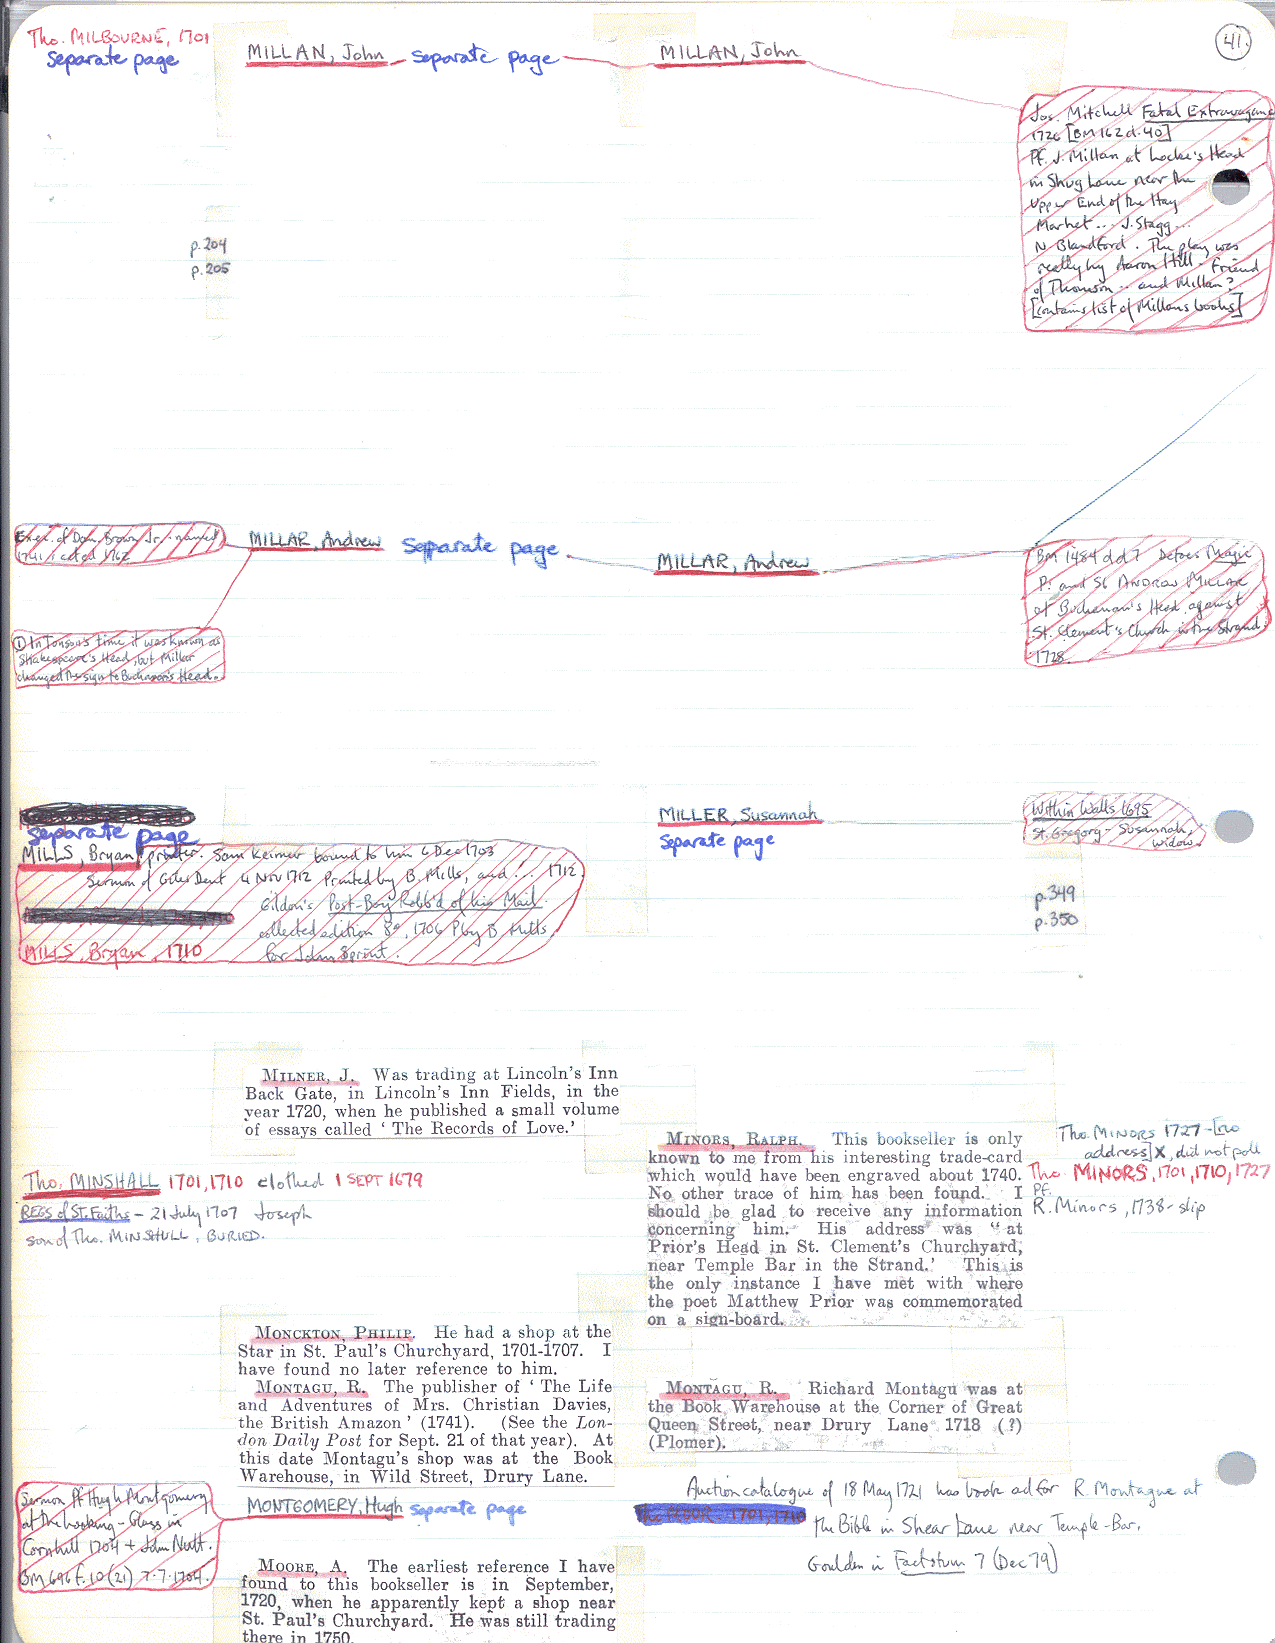 Tho. MILBOURNE, 1701
Separate page
MILLAN, John Separate page
MILLAN, John
41.
Jos. Mitchell Fatal Extravagance
1726 [BM 162 d. 40]
Pf. J. Millan at Locke's Head
in Shug Lane near the
Upper End of the Hay
Market... J. Stagg...
N Blandford. The play was
really by Aaron Hill. Friend
of Thomson... and Millan?
[contains list of Millans books]
p. 204
p. 205
Exec. of Dan. Brown Jr.
MILLAR, Andrew Separate page
MILLAR, Andrew
BM 1484 dd 7 Defoes Magic
Pr. and So ANDREW MILLAR
at Buchanan's Head, against
St. Clement's Church in the Strand.
1728.
① In Tonson's time it was known as
Shakespeare's Head, but Millar
changed the sign to Buchanan's Head.
Separate page
MILLS, Bryan printer. Sam Keimer bound to him 6 Dec 1703
Sermon of Giles Dent 4 Nov 1712 Printed by B. Mills, and... 1712.
Gildon's Post-Boy Robb'd of his Mail.
collected edition 8º, 1706 P by B Mills
for John Sprint.
MILLS, Bryan, 1710
MILLER, Susannah
Separate page
Within Walls 1695
St. Gregory - Susannah,
widow
p. 349
p. 350
MILNER, J. Was trading at Lincoln's Inn
Back Gate, in Lincoln's Inn Fields, in the
year 1720, when he published a small volume
of essays called ' The Records of Love.'
Tho. MINSHALL 1701, 1710 clothed 1 SEPT 1679
REGS of St. Faiths - 21 July 1707 Joseph
son of Tho. MINSHULL, BURIED.
MINORS, RALPH. This bookseller is only
known to me from his interesting trade-card
which would have been engraved about 1740.
No other trace of him has been found. I
should be glad to receive any information
concerning him. His address was " at
Prior's Head in St. Clement's Churchyard,
near Temple Bar in the Strand.' This is
the only instance I have met with where
the poet Matthew Prior was commemorated
on a sign-board.
Tho. MINORS 1727 - [no
address] X, did not poll
Tho. MINORS, 1701, 1710, 1727
Pf.
R. Minors, 1738 - slip
MONCKTON, PHILIP. He had a shop at the
Star in St. Paul's Churchyard, 1701-1707. I
have found no later reference to him.
MONTAGU, R. The publisher of ' The Life
and Adventures of Mrs. Christian Davies,
the British Amazon ' (1741). (See the Lon-
don Daily Post for Sept. 21 of that year). At
this date Montagu's shop was at the Book
Warehouse, in Wild Street, Drury Lane.
MONTAGU, R. Richard Montagu was at
the Book Warehouse at the Corner of Great
Queen Street, near Drury Lane 1718 (?)
(Plomer).
Auction catalogue of 18 May 1721 has book ad for R. Montague at
the Bible in Shear Lane near Temple-Bar.
Goulden in Factotum 7 (Dec 79)
Sermon Pf Hugh Montgomery
at the Looking-Glass in
Cornhill 1704 + John Nutt.
BM 696 f. 10 (21) 7.7.1704.
MONTGOMERY, Hugh separate page
MOORE, A. The earliest reference I have
found to this bookseller is in September,
1720, when he apparently kept a shop near
St. Paul's Churchyard. He was still trading
there in 1750.